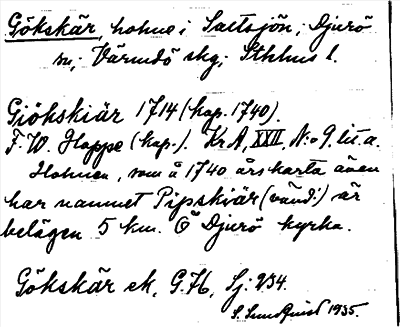 Gökskär, holme i Saltsjön; Djurö
sn; Värmdö skg; Sthlms l.
Giökskiär 1714 (kop. 1740).
F. W. Hoppe (kop.). Kr A, XXII, N:o 9. lit. a.
Holmen, som å 1740 årskarta även
har namnet Pipskiär (vänd:) är
belägen 5 km. Ö Djurö kyrka.
Gökskär ek, G. 76, Sj: 234.
S. Sundquist 1935.